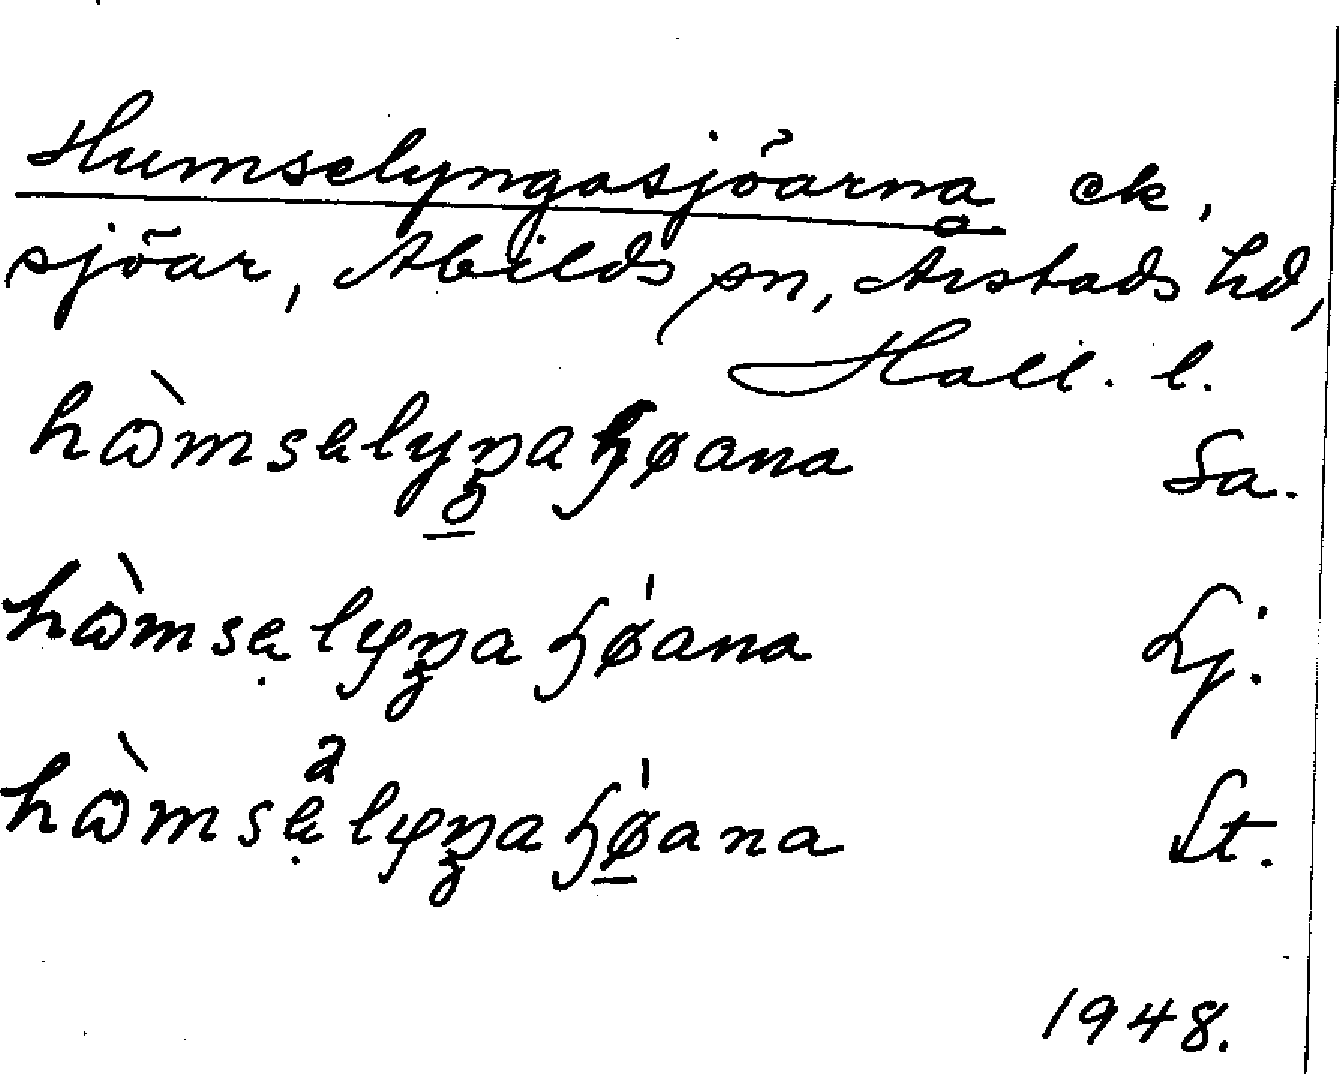 Humselyngasjöarna ek,
sjöar, Abilds sn, Årstads hd,
Hall. l.
hòmsəlyŋaɧøana Sa.
hòmsəlyŋaɧǿana Lj.
hòmsəlyŋaɧǿana St.
1948.